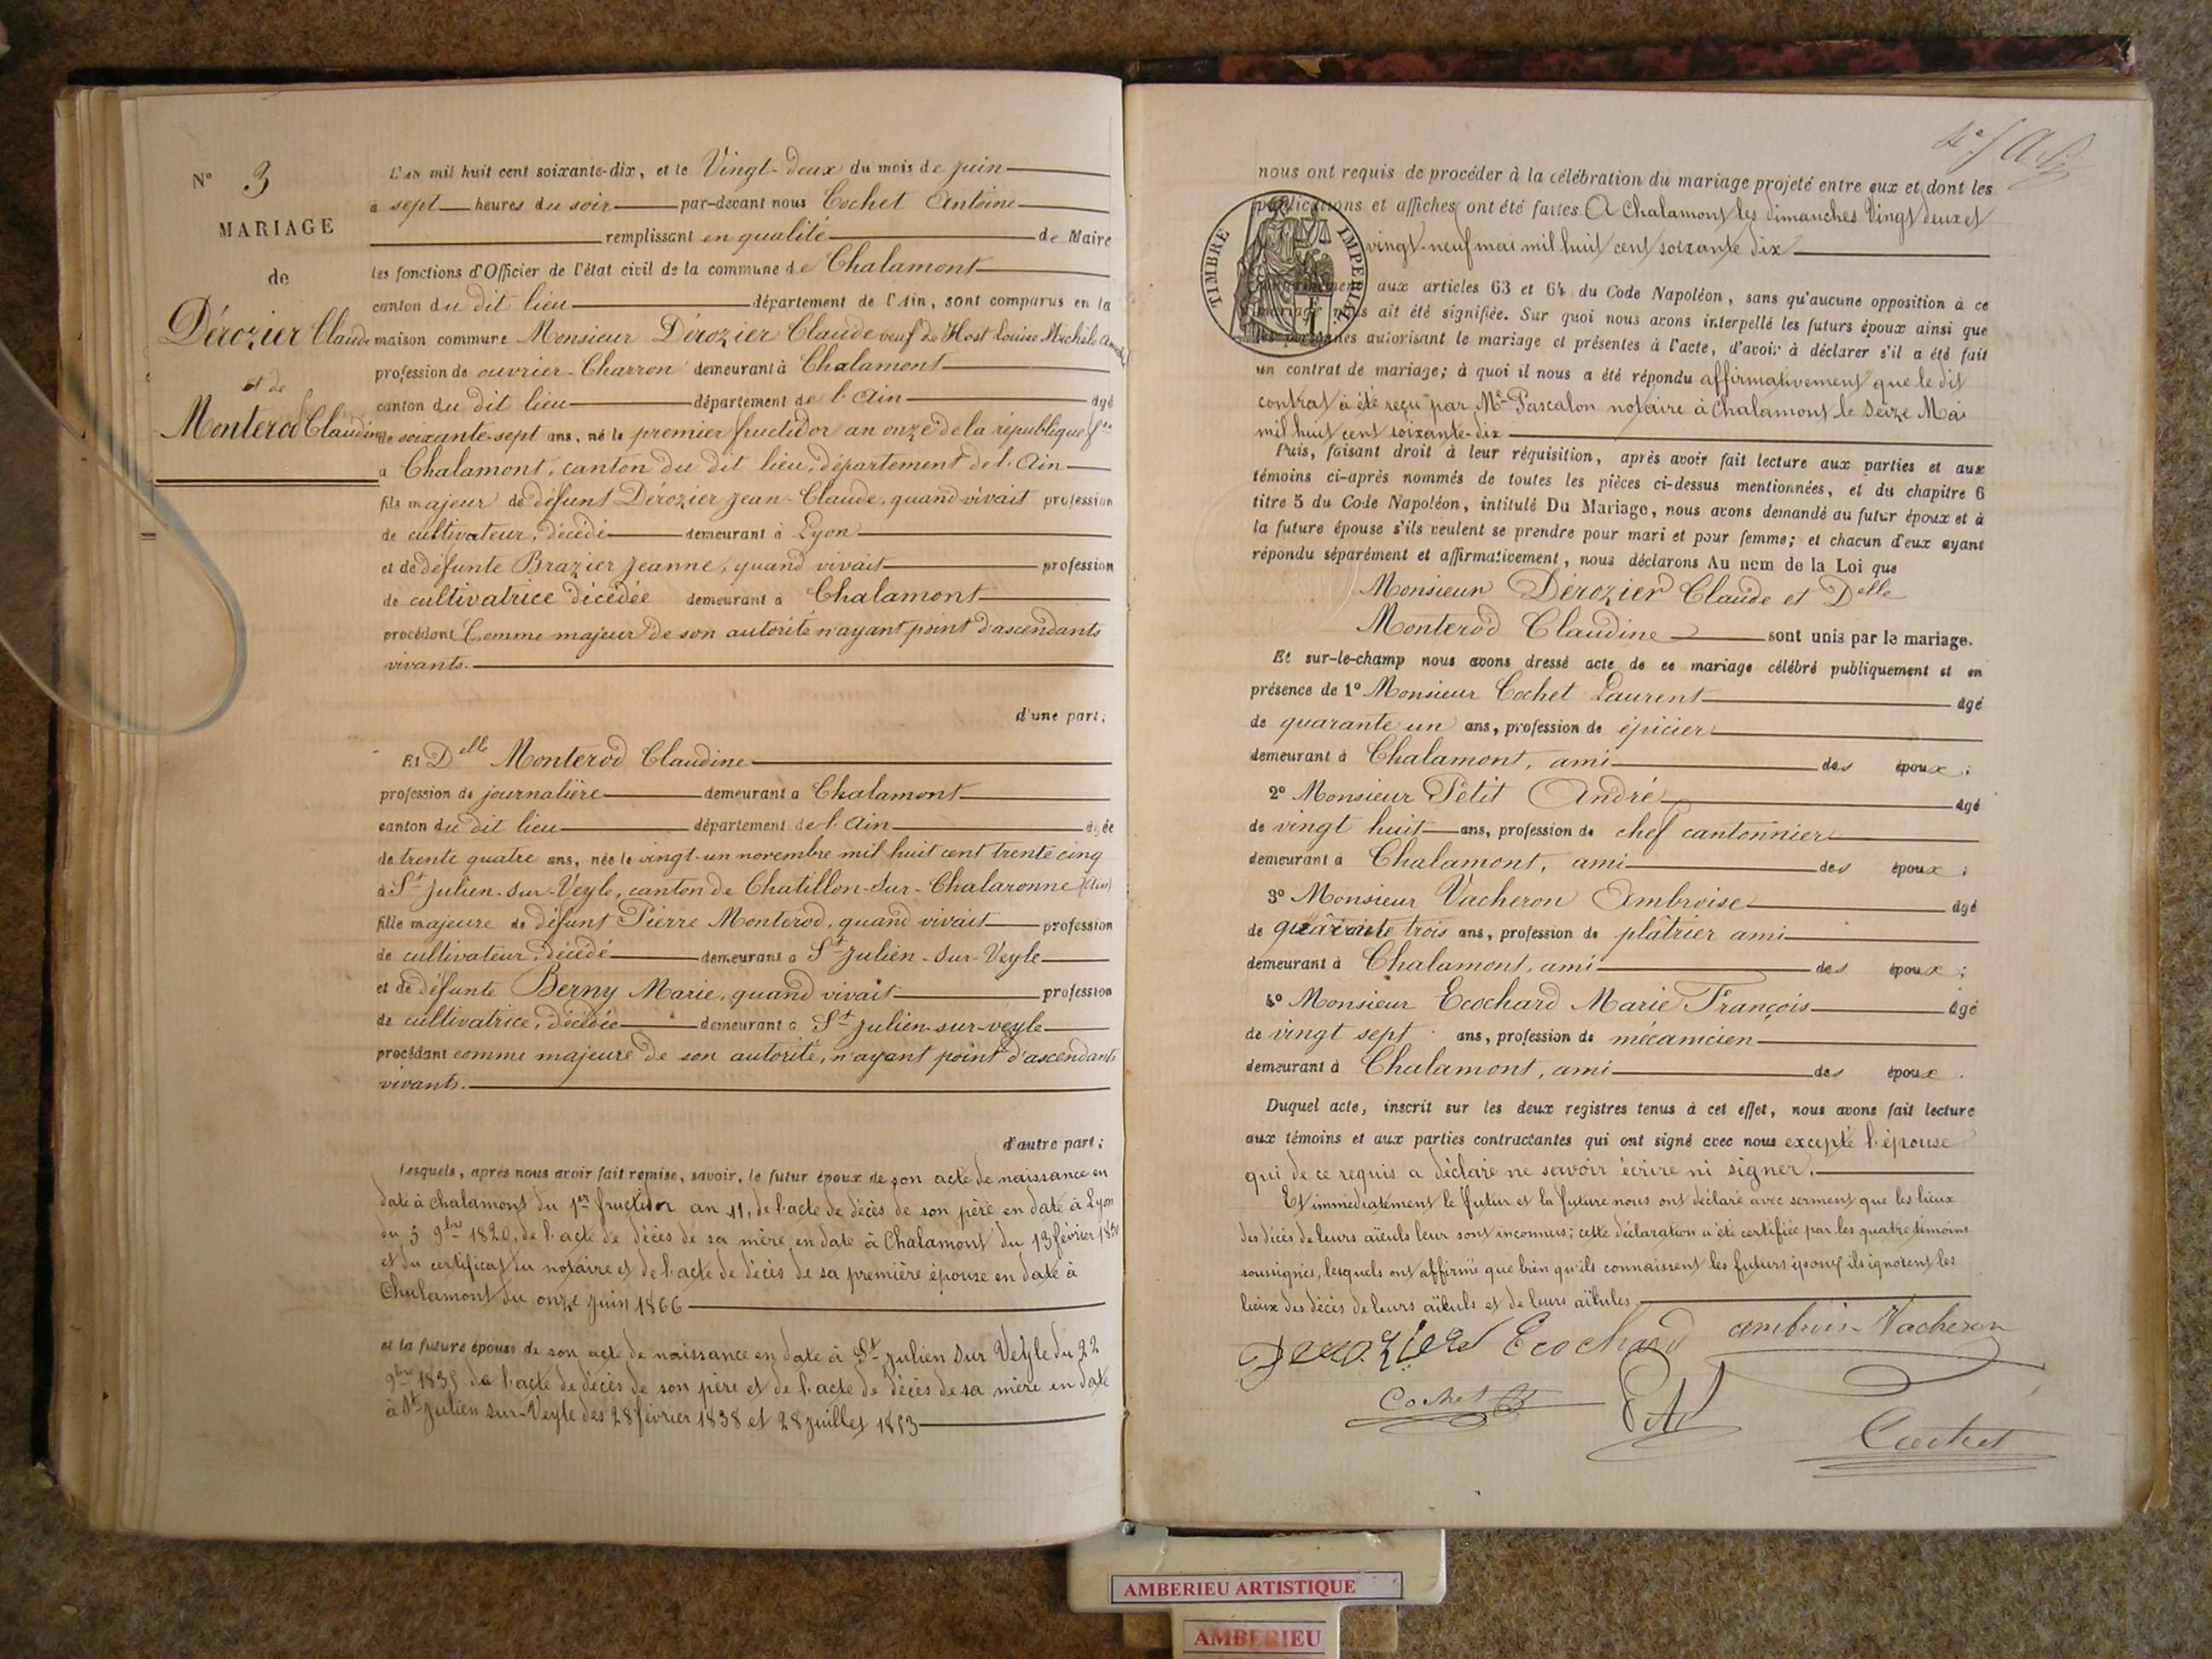 N° 3
MARIAGE
de
Dérozier Claude
et de
Monterod Claudine
L'an mil huit cent soixante-dix, et le Vingt-deux du mois de juin
a sept heures du soir par-devant nous Cochet Antoine
remplissant en qualité de Maire
les fonctions d'Officier de l'état civil de la commune de Chalamont
canton du dit lieu département de l'Ain, sont comparus en la
maison commune Monsieur Dérozier Claude veuf de Host Louise Michel
profession de ouvrier-Charron demeurant à Chalamont
canton du dit lieu département de l'Ain âgé
de soixante-sept ans, né le premier fructidor an onze de la république fse
a Chalamont, canton du dit lieu, département de l'Ain
fils majeur de défunt Dérozier Jean-Claude, quand vivait profession
de cultivateur, décédé demeurant à Lyon
et de défunte Brazier Jeanne, quand vivait profession
de cultivatrice décédée demeurant a Chalamont
procédant Comme majeur de son autorité n'ayant point d'ascendants
vivants.
d'une part;
Et Delle Monterod Claudine
profession de journalière demeurant a Chalamont
canton du dit lieu département de l'Ain âgée
de trente quatre ans, née le vingt-un novembre mil huit cent trente cinq
à St Julien-sur-Veyle, canton de Chatillon-sur-Chalaronne (Ain)
fille majeure de défunt Pierre Monterod, quand vivait profession
de cultivateur, décédé demeurant a St Julien-sur-Veyle
et de défunte Berny Marie, quand vivait profession
de cultivatrice, décédée demeurant a St Julien-sur-veyle
procédant comme majeure de son autorité, n'ayant point d'ascendants
vivants.
d'autre part;
Lesquels, après nous avoir fait remise, savoir, le futur époux de son acte de naissance en
date à Chalamont du 1er fructidor an 11, de l'acte de décès de son père en date à Lyon
du 5 9bre 1820, de l'acte de décès de sa mère en date à Chalamont du 13 février
et du certificat du notaire et de l'acte de décès de sa première épouse en date à
Chalamont du onze juin 1866
et la future épouse de son acte de naissance en date à St Julien sur Veyle du 22
9bre 1835 de l'acte de décès de son père et de l'acte de décès de sa mère en date
à St Julien sur-Veyle des 28 février 1838 et 28 juillet 1853
nous ont requis de procéder à la célébration du mariage projeté entre eux et dont les
publications et affiches ont été faites A Chalamont les dimanches Vingt deux et
vingt-neuf mai mil huit cent soixante dix
TIMBRE IMPERIAL
aux articles 63 et 64 du Code Napoléon, sans qu'aucune opposition à ce
mariage nous ait été signifiée. Sur quoi nous avons interpellé les futurs époux ainsi que
les personnes autorisant le mariage et présentes à l'acte, d'avoir à déclarer s'il a été fait
un contrat de mariage; à quoi il nous a été répondu affirmativement que le dit
contrat à été reçu par Me Pascalon notaire à Chalamont le seize Mai
mil huit cent soixante-dix
Puis, faisant droit à leur réquisition, après avoir fait lecture aux parties et aux
témoins ci-après nommés de toutes les pièces ci-dessus mentionnées, et du chapitre 6
titre 5 du Code Napoléon, intitulé Du Mariage, nous avons demandé au futur époux et à
la future épouse s'ils veulent se prendre pour mari et pour femme; et chacun d'eux ayant
répondu séparément et affirmativement, nous déclarons Au nom de la Loi que
Monsieur Dérozier Claude et Delle
Monterod Claudine sont unis par le mariage.
Et sur-le-champ nous avons dressé acte de ce mariage célébré publiquement et en
présence de 1° Monsieur Cochet Laurent âgé
de quarante un ans, profession de épicier
demeurant à Chalamont, ami des époux;
2° Monsieur Petit André âgé
de vingt huit ans, profession de chef cantonnier
demeurant à Chalamont, ami des époux;
3° Monsieur Vacheron Ambroise âgé
de quarante trois ans, profession de plâtrier ami
demeurant à Chalamont, ami des époux;
4° Monsieur Ecochard Marie François âgé
de vingt sept ans, profession de mécanicien
demeurant à Chalamont, ami des époux.
Duquel acte, inscrit sur les deux registres tenus à cet effet, nous avons fait lecture
aux témoins et aux parties contractantes qui ont signé avec nous excepté l'épouse
qui de ce requis a déclaré ne savoir écrire ni signer.
Et immédiatement le futur et la future nous ont déclaré avec serment que les lieux
des décès de leurs aïeuls leur sont inconnus; cette déclaration a été certifiée par les quatre témoins
soussignés, lesquels ont affirmé que bien qu'ils connaissent les futurs époux ils ignorent les
lieux des décès de leurs aïeuls et de leurs aïeules.
Derozier Ecochard ambroise Vacheron
Cochet Petit
Cochet
AMBERIEU ARTISTIQUE
AMBERIEU